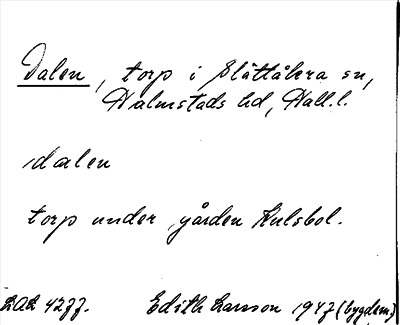 Dalen, torp i Slättåkra sn,
Halmstads hd, Hall.l.
dalen
torp under gården Kulsbol.
LAL 4277. Edith Larsson 1947 (bygdem)